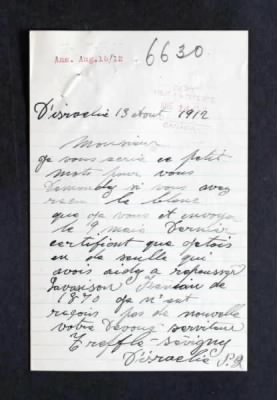 Ans. Aug. 16/12
6630
D'israelie 13 Aout 1912
Monsieur
Ja vous scrie ce petit
mots pour vous
demmdy si vous avez
riceu le blanc
que ja vous et envoyer
le 9 mais Dernier
certifiont que jetois
un de seulle qui
avois aidez a repousser
lavansion Fenian de
1870 ja n'ent
reçois pas de nouvelle
votre Devoug serviteur
Treffle Sévigny
D'israelie P.Q